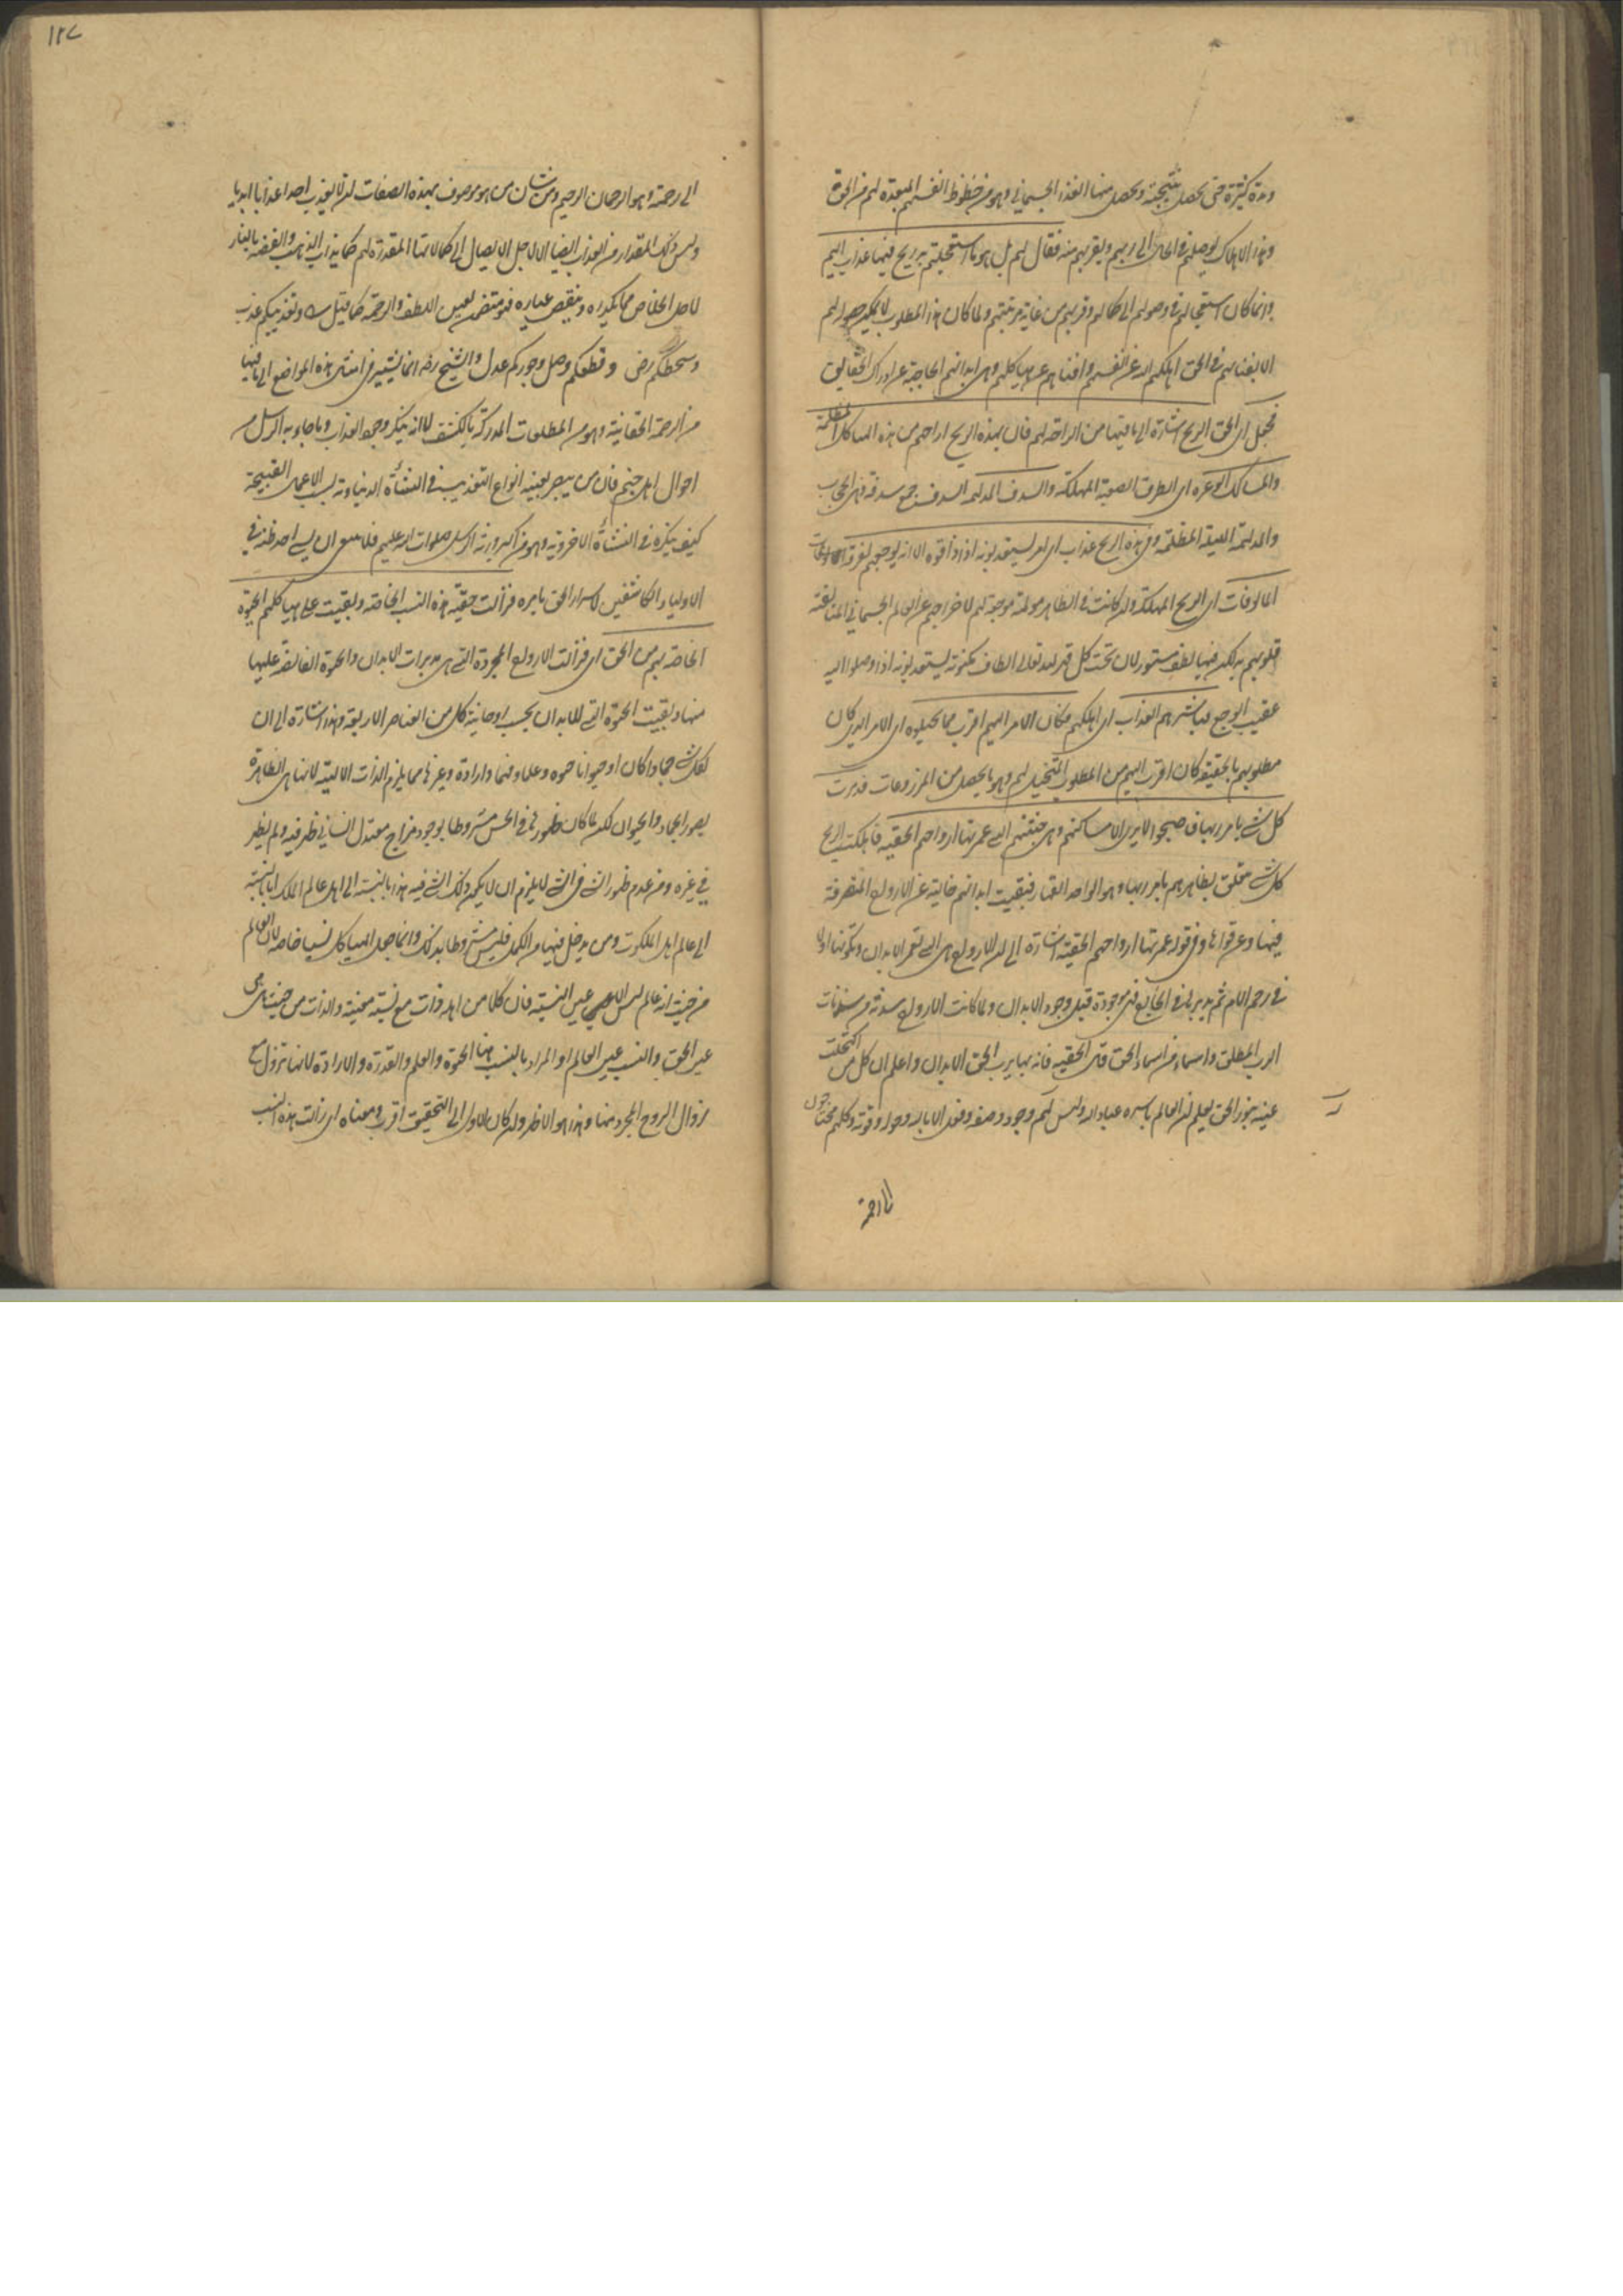 ومدة كثيرة حتى يحصل نتيجته ويحصل منها الغذاء الجسماني وهو من حظوظ انفسهم المبعدة لهم من الحق
وهذا الاهلاك يوصلهم في الحال الى ربهم ويقربهم منه فقال لهم بل هو ما استعجلتم به ريح فيها عذاب اليم
وانما كان استعجالهم في وصولهم الى كمالهم وقربهم من غاية مرتبتهم ولما كان هذا المطلوب لا يمكن حصوله لهم
الا بفنائهم في الحق اهلكهم الله عن انفسهم وافناهم عن هياكلهم وهي ابدانهم الحاجبة عن ادراك الحقايق
فجعل اى الحق الريح اشارة الى ما فيها من الراحة لهم فان بهذه الريح اراحهم من هذه الهياكل المظلمة
والمسالك الوعرة اى الطرق الصعبة المهلكة والسدف المدلهمة السدف جمع سدفة وهي الحجاب
والمدلهمة الليلة المظلمة وفي هذه الريح عذاب اى امر يستعذبونه اذا ذاقوه الا انه يوجعهم لفرقة المالوفات
المالوفات اى الريح المهلكة وان كانت في الظاهر مولمة موجعة لهم لاخراجهم عن العالم الجسماني المتألفة
قلوبهم به لكن فيها لطف مستور لان تحت كل قهر لله تعالى الطاف مكنونة يستعذبونه اذا وصلوا اليه
عقيب الوجع فباشرهم العذاب اى اهلكهم فكان الامر اليهم اقرب مما تخيلوه اى الامر الذي كان
مطلوبهم بالحقيقة كان اقرب اليهم من المطلوب المتخيل لهم وهو ما يحصل من المزروعات فدمرت
كل شئ بامر ربها فاصبحوا لا يرى الا مساكنهم وهي جثتهم التي عمرتها ارواحهم الحقية فاهلكت الريح
كل شئ متعلق بظاهرهم بامر ربها وهو الواحد القهار فبقيت ابدانهم خالية عن الارواح المتصرفة
فيها وعن قواها وفي قوله عمرتها ارواحهم الحقية اشارة الى ان الارواح هي التي تعمر الابدان وتكونها اولا
في رحم الام ثم يدبرها في الخارج فهي موجودة قبل وجود الابدان ولما كانت الارواح سدنة من سدنات
الرب المطلق واسماء من اسماء الحق قال الحقية فانه بها يرب الحق الابدان واعلم ان كل من اكتحلت
عينه بنور الحق يعلم ان العالم باسره عباد الله وليس لهم وجود وصفة وفعل الا بالله وحوله وقوته وكلهم محتاجون
الى رحمته
١٢٧
الى رحمته وهو الرحمان الرحيم ومن شان من هو موصوف بهذه الصفات ان لا يعذب احدا عذابا ابديا
وليس ذلك المقدار من العذاب ايضا الا لاجل الايصال الى كمالاتها المقدرة لهم كما يذاب الذهب والفضة بالنار
لاجل الخلاص مما يكدره وينقص عياره فهو متضمن لعين اللطف والرحمة كما قيل شعر وتعذيبكم عذب
وسخطكم رضى وقطعكم وصل وجوركم عدل والشيخ رضى انما يشير في امثال هذه المواضع الى ما فيها
من الرحمة الحقانية وهو من المطلعات المدركة بالكشف لا انه ينكر وجود العذاب وما جاء به الرسل من
احوال اهل جهنم فان من يبصر بعينه انواع التعذيب في النشأة الدنياوية بسبب الاعمال القبيحة
كيف ينكره في النشأة الاخروية وهو من اكبر ورثة الرسل صلوات الله عليهم فلا ينبغى ان يسئ احد ظنه في
الاولياء الكاشفين لاسرار الحق بامره فزالت حقيقة هذه النسب الخاصة وبقيت على هياكلهم الحيوة
الخاصة بهم من الحق اى فزالت الارواح المجردة التي هي مدبرات الابدان والحيوة الفايضة عليها
منها وبقيت الحيوة التي للابدان بحسب روحانية كل من العناصر الاربعة وهذا اشارة الى ان
لكل شئ جمادا كان او حيوانا حيوة وعلما ونطقا وارادة وغيرها مما يلزم الذات الالهية لانها هي الظاهرة
بصور الجماد والحيوان لكن لما كان ظهورها في الحس مشروطا بوجود مزاج معتدل انسانى ظهر فيه ولم يظهر
في غيره ومن عدم ظهور الشئ في الشئ لا يلزم ان لا يكون ذلك الشئ فيه هذا بالنسبة الى اهل عالم الملك اما بالنسبة
الى عالم اهل الملكوت ومن يدخل فيها من الكمل فليس مشروطا بذلك وانما جعل الهياكل نسبا خاصة لان العالم
من حيث انه عالم ليس الا عين النسبة فان كلا من اهله ذات مع نسبة معينة والذات من حيث هي هي
عين الحق والنسب عين العالم او المراد بالنسب هنا الحيوة والعلم والقدرة والارادة لانها تزول مع
زوال الروح المجرد منها وهذا هو الاظهر وان كان الاول الى التحقيق اقرب ومعناه اى زالت هذه النسب